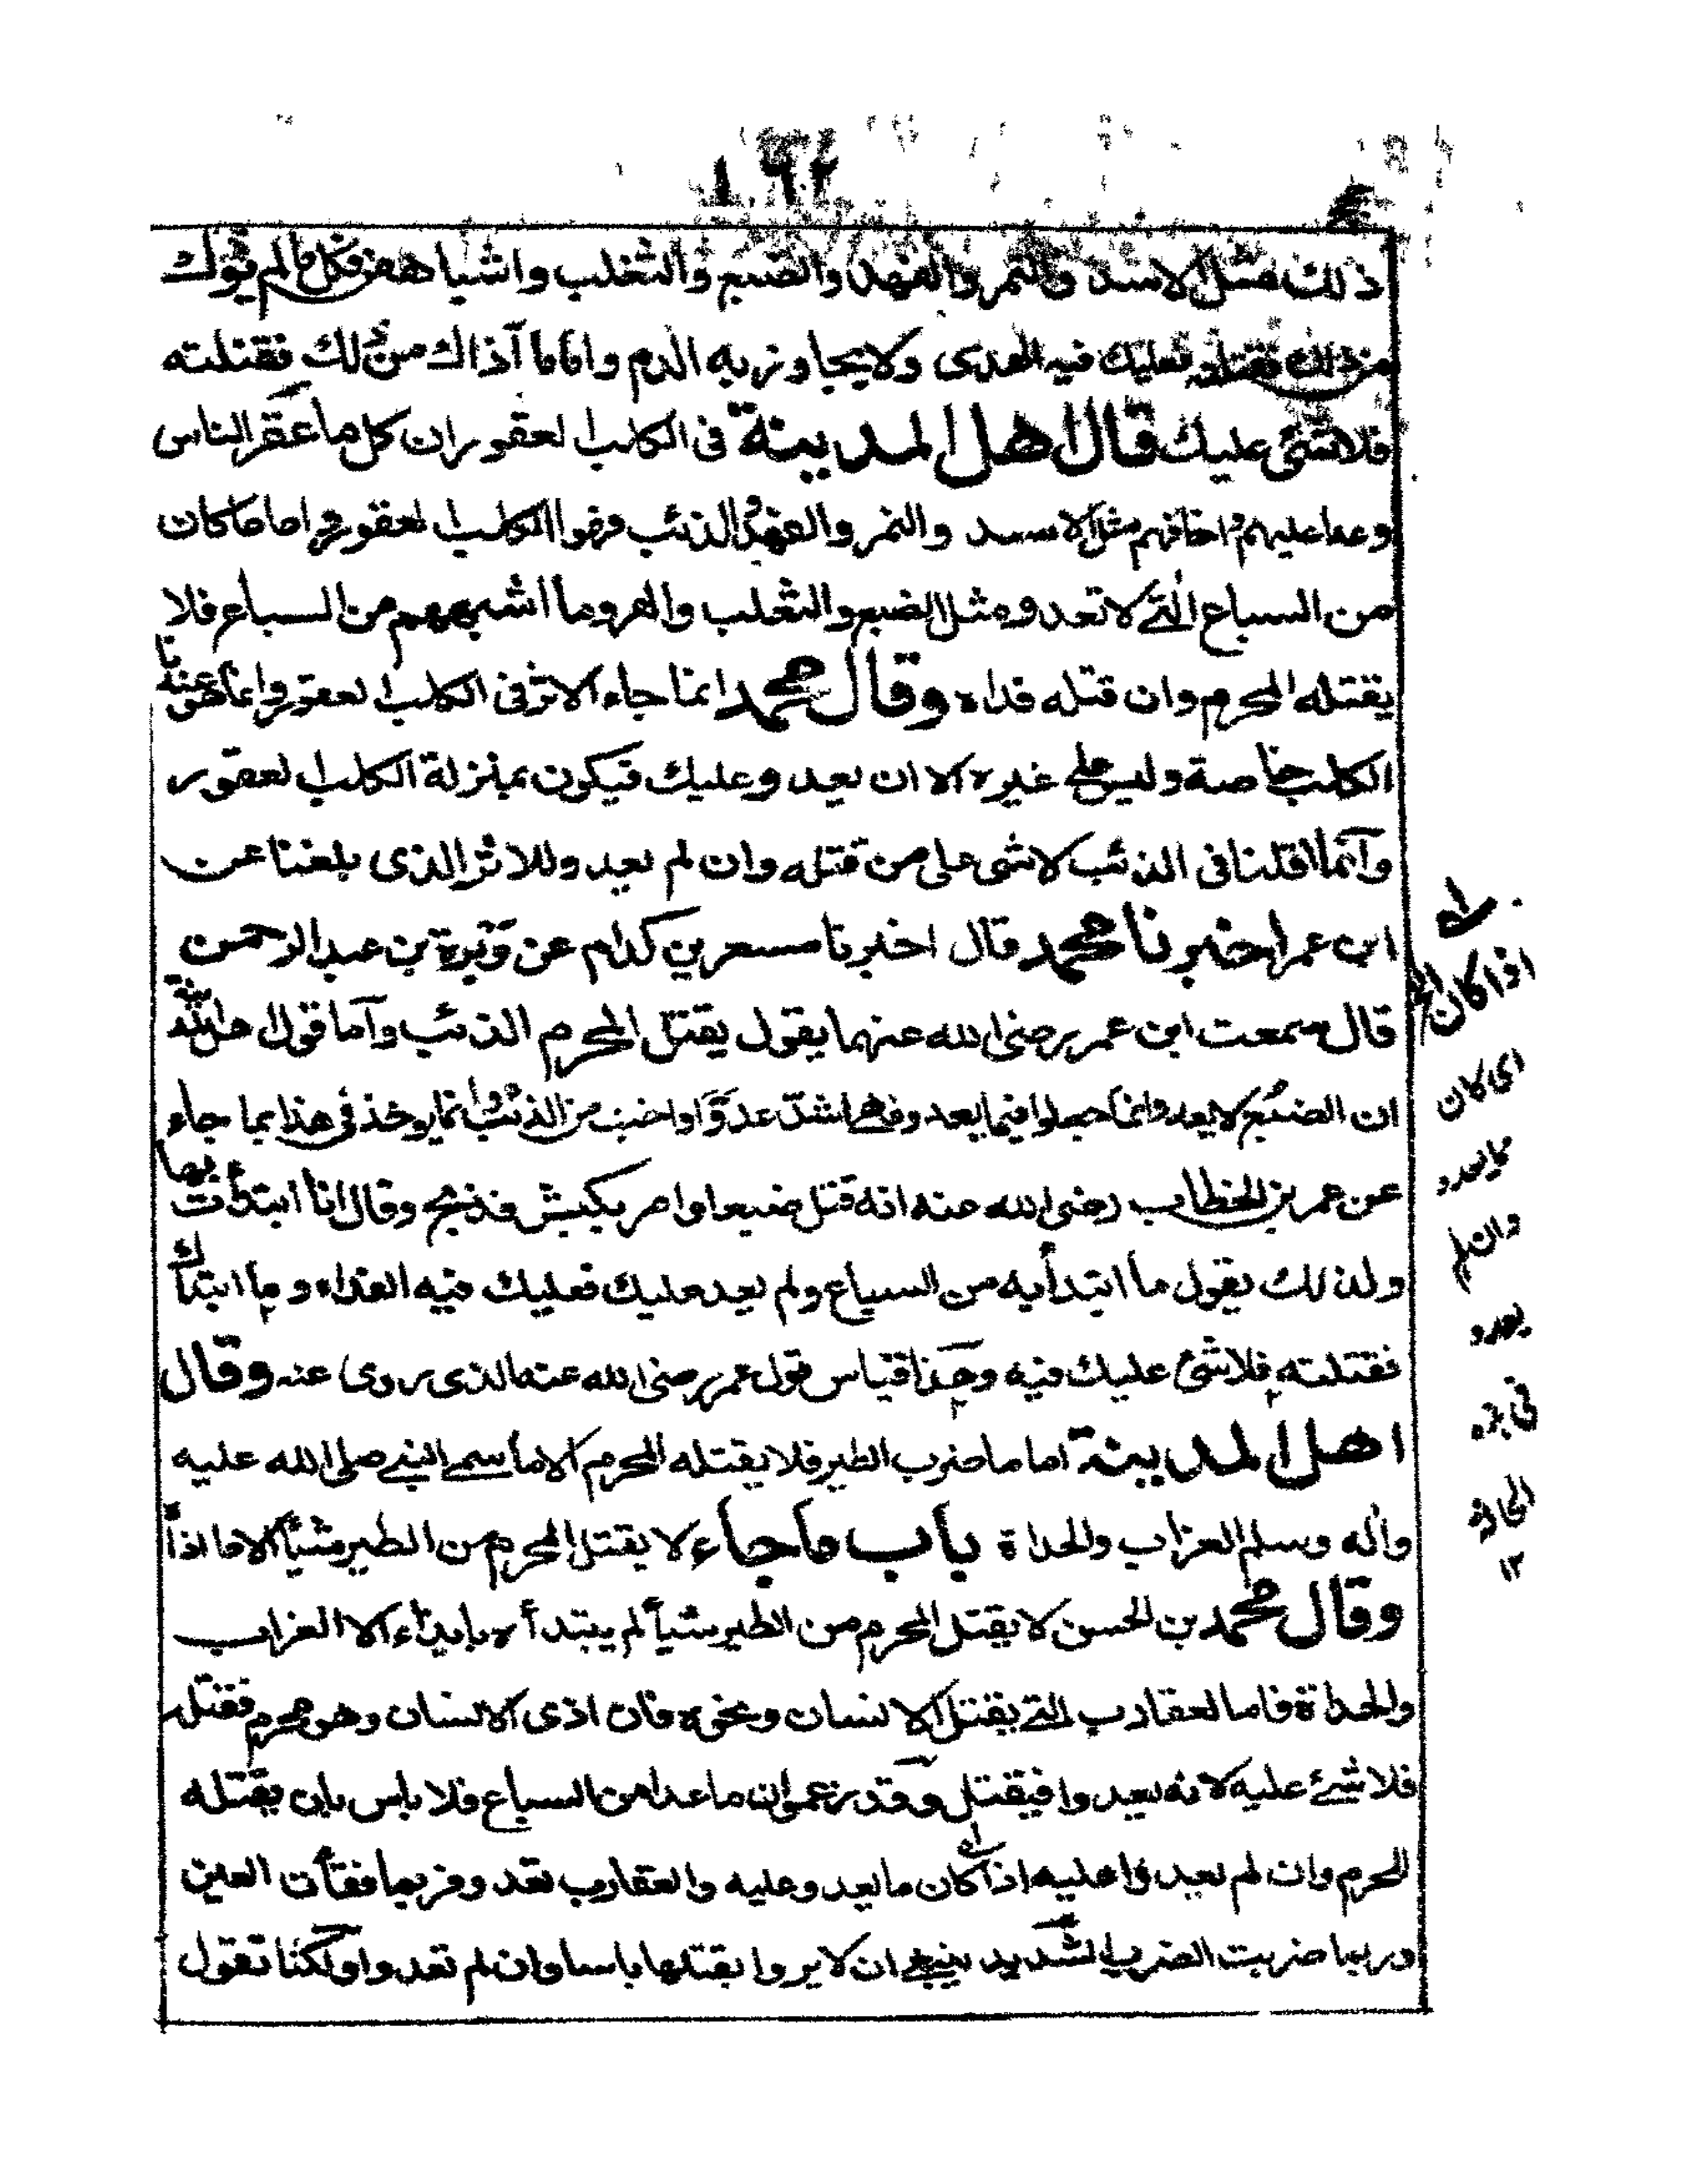 ١٦٢
ذلك مثل الاسد والنمر والفهد والضبع والثعلب واشباههن فكل مالم يؤك
من ذلك فقتلته فعليك فيه الهدى ولا يجاوز به الدم وان ما آذاك من ذلك فقتلته
فلا شئ عليك قال اهل المدينة فى الكلب العقور ان كل ما عقر الناس
وعدا عليهم واخافهم مثل الاسد والنمر والفهد والذئب فهو الكلب العقور واما ما كان
من السباع التى لا تعدو مثل الضبع والثعلب والهر وما اشبههم من السباع فلا
يقتله المحرم وان قتله فداه وقال محمد انما جاء الاثر فى الكلب العقور وانما هو عندنا
الكلب خاصة وليس على غيره الا ان يعدو عليك فيكون بمنزلة الكلب العقور
وانما قلنا فى الذئب لا شئ على من قتله وان لم يعد وللاثر الذى بلغنا عن
ابن عمر اخبرنا محمد قال اخبرنا مسعر بن كدام عن وبرة بن عبد الرحمن
قال سمعت ابن عمر رضى الله عنهما يقول يقتل المحرم الذئب وآما قول اهل المدينة
ان الضبع لا يعدو وانما جعلوا فيما يعدو فهى اشد عدوًا واخبث من الذئب وانما يوخذ فى هذا بما جاء
عن عمر بن الخطاب رضى الله عنه انه قتل ضبعا وامر بكبش فذبح وقال انا ابتدأتها
ولذلك يقول ما ابتدأ به من السباع ولم يعد عليك فعليك فيه الفداء وما ابتدأك
فقتلته فلا شئ عليك فيه وهذا قياس قول عمر رضى الله عنه الذى روى عنه وقال
اهل المدينة اما ما ضرب الطير فلا يقتله المحرم الا ما سمى النبى صلى الله عليه
وأله وسلم الغراب والحداة باب ما جاء لا يقتل المحرم من الطير شيأ الا ما اذا
وقال محمد بن الحسن لا يقتل المحرم من الطير شيأ لم يبتدأه بايذاء الا الغراب
والحداة فاما العقارب التى يقتل الانسان ونحوه فان اذى الانسان وهو محرم فقتل
فلا شئ عليه لانه يعدوا فيقتل وقد زعموا ان ما عدا من السباع فلا باس بان يقتله
المحرم وان لم يعدوا عليه اذا كان ما يعدو عليه والعقارب تعدو فربما فقأت العين
وربما ضربت الضرب الشديد ينبغى ان لا يروا بقتلها باسا وان لم تعدوا ولكنا تقول
اى كان
مما يعدو
وان لم
يعدو
فى هذه
١٢